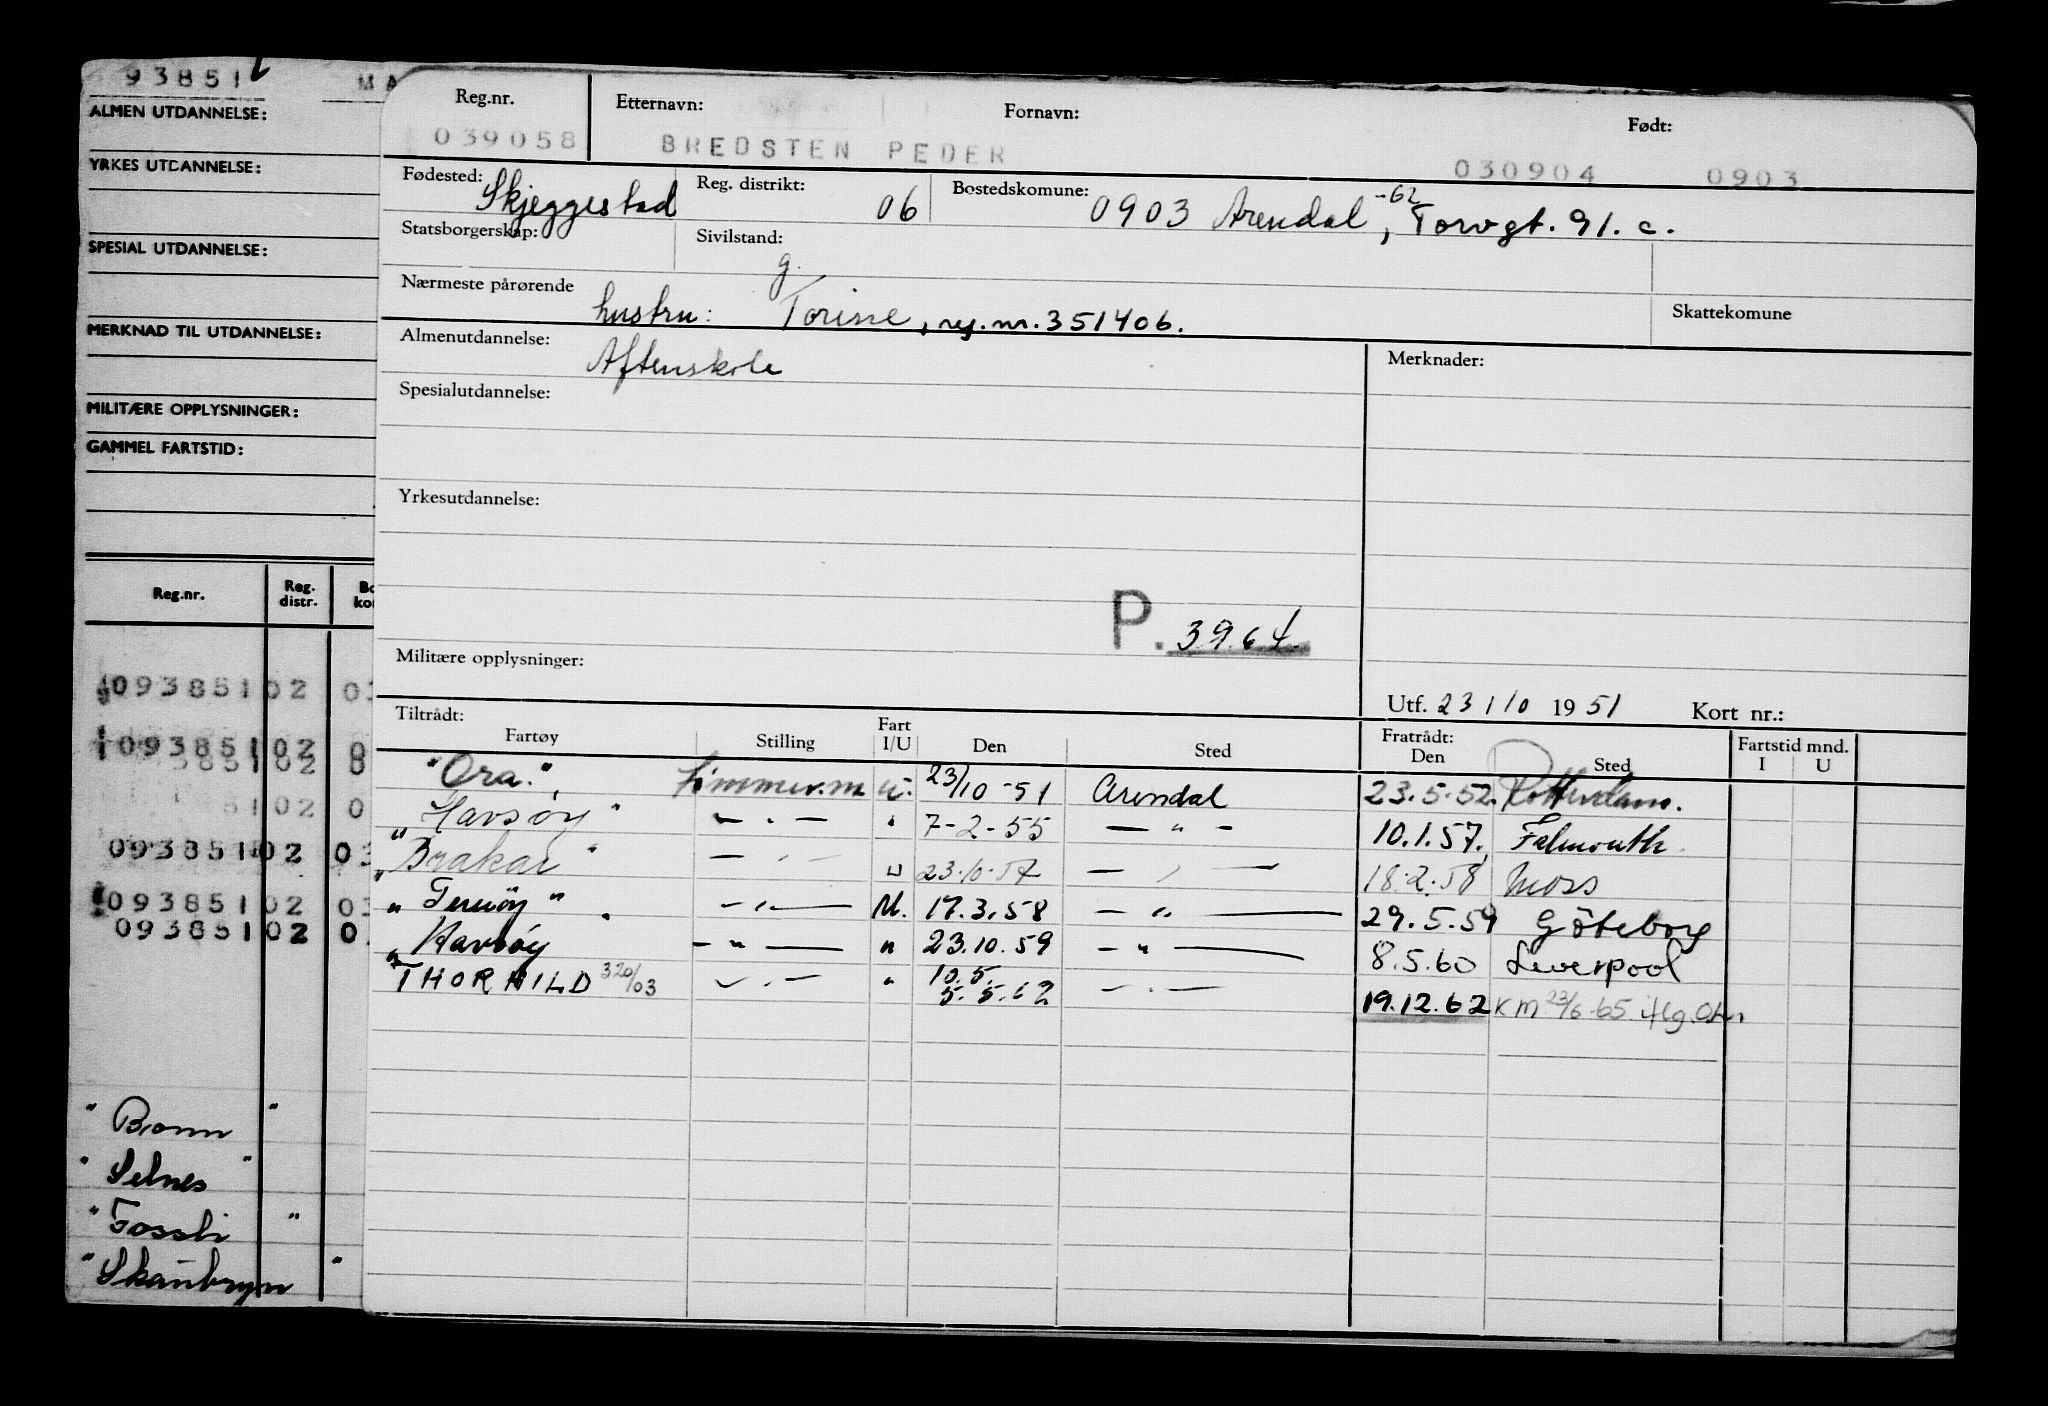 93851 MA
ALMEN UTDANNELSE:
YRKES UTDANNELSE:
SPESIAL UTDANNELSE:
MERKNAD TIL UTDANNELSE:
MILITÆRE OPPLYSNINGER:
GAMMEL FARTSTID:
Reg.nr. Reg. distr. Bo kor
093851 02 03
093851 02 0
3851 02 0
51 02 0
093851 02 03
093851 02 03
093851 02 0
" Bonn "
" Selnes "
" Fossli "
" Skaubryn "
Reg.nr. Etternavn: Fornavn: Født:
039058 BREDSTEN PEDER 030904 0903
Fødested: Skjeggestad Reg. distrikt: 06 Bostedskomune: 0903 Arendal -62, Torvgt. 91. c.
Statsborgerskap: Sivilstand: g.
Nærmeste pårørende hustru: Torine, reg.nr. 351406. Skattekomune
Almenutdannelse: Aftenskole Merknader:
Spesialutdannelse:
Yrkesutdannelse:
P. 3964.
Militære opplysninger:
Utf. 23/10 1951 Kort nr.:
Tiltrådt: Fratrådt: Fartstid mnd.
Fartøy Stilling Fart I/U Den Sted Den Sted I U
"Ora", Tømmerm. u. 23/10-51 Arendal 23.5.52. Rotterdam.
"Havsøy" — " — " 7-2-55 — " — 10.1.57. Falmouth.
"Brakar" — " — u 23.10.57 — " — 18.2.58 Moss
" Ternøy " — " — U. 17.3.58 — " — 29.5.59 Göteborg
" Havsøy — " — " 23.10.59 — " — 8.5.60 Liverpool
THORHILD 320/03 — " — " 10.5. 5.5.62 — " — 19.12.62 KM 23/6-65